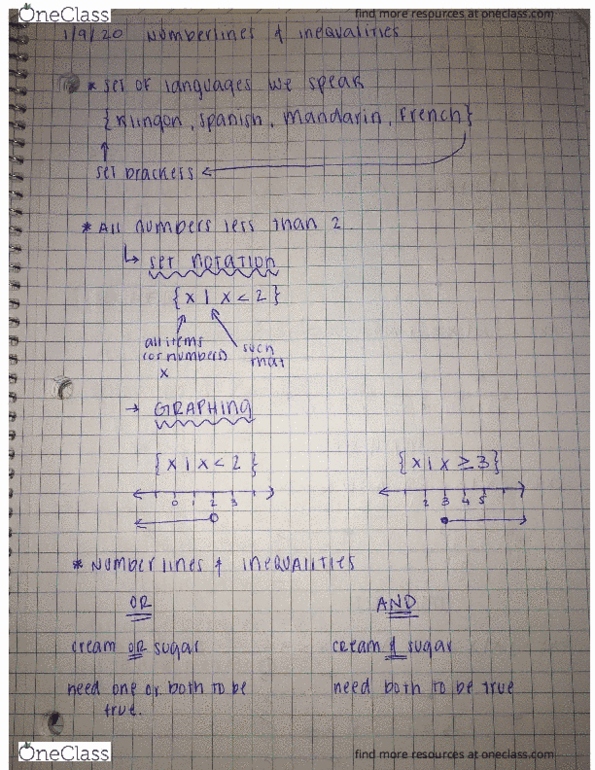 OneClass
find more resources at oneclass.com
1/9/20 Numberlines & inequalities
* set of languages we speak
{Klingon, Spanish, Mandarin, French}
set brackets
* All numbers less than 2
↳ set notation
{x | x < 2}
all items
(or numbers)
x
such
that
→ GRAPHING
{x | x < 2}
{x | x ≥ 3}
0 1 2 3
2 3 4 5
* Numberlines & inequalities
OR
AND
cream OR sugar
cream & sugar
need one or both to be
true.
need both to be true
OneClass
find more resources at oneclass.com